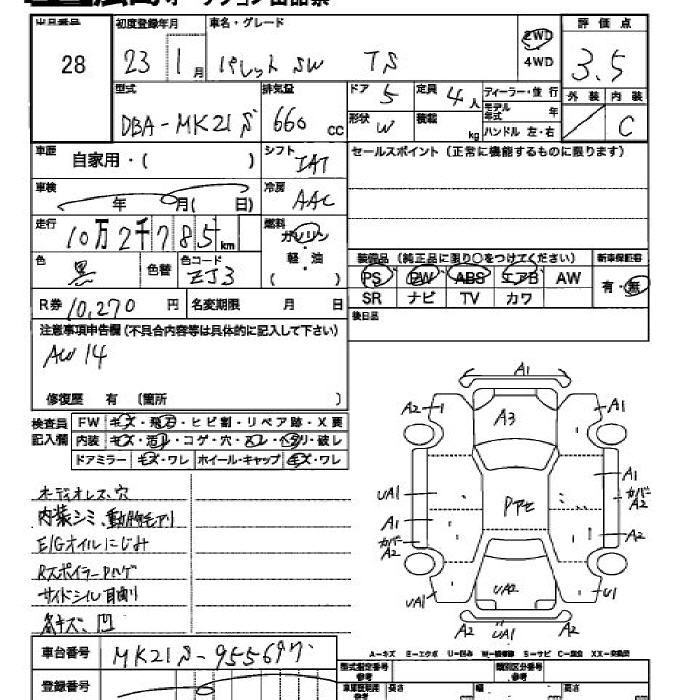 出品番号 28
初度登録年月 23 1月
車名・グレード パレットSW TS
2WD 4WD
評価点 3.5
型式 DBA-MK21S
排気量 660 CC
ドア 5 定員 4人
形状 W 積載 kg
ディーラー・並行
モデル年式 年
ハンドル 左・右
外装 内装 C
車歴 自家用・( )
シフト IAT
セールスポイント (正常に機能するものに限ります)
車検 年 月( 日)
冷房 AAC
走行 10万2千785km
燃料 ガソリン・軽・油 ( )
色 黒 色替 色コード ZJ3
装備品 (純正品に限り○をつけてください) 新車保証書
PS PW ABS エアB AW 有・無
SR ナビ TV カワ
R券 10,270円 名変期限 月 日
後日品
注意事項申告欄 (不具合内容等は具体的に記入して下さい)
AW 14
修復歴 有 〔箇所 〕
検査員記入欄
FW キズ・飛石・ヒビ割・リペア跡・X要
内装 キズ・汚れ・コゲ・穴・スレ・ヘタリ・破レ
ドアミラー キズ・ワレ ホイール・キャップ キズ・ワレ
オーディオレス、穴
内装シミ、動物毛アリ
E/Gオイルにじみ
RスポイラーPハゲ
サイドシル
各キズ、凹
A1
A2 A3 A1
A1
UA1 Pアセ カバー A2
A1
カバー A2 A2
UA1 UA2 U1
A2 UA1 A2
車台番号 MK21S-955697
A-キズ E-エクボ U-凹み S-サビ C-腐食 XX-交換済
登録番号
型式指定番号 参考 類別区分番号 参考
長さ 幅 高さ